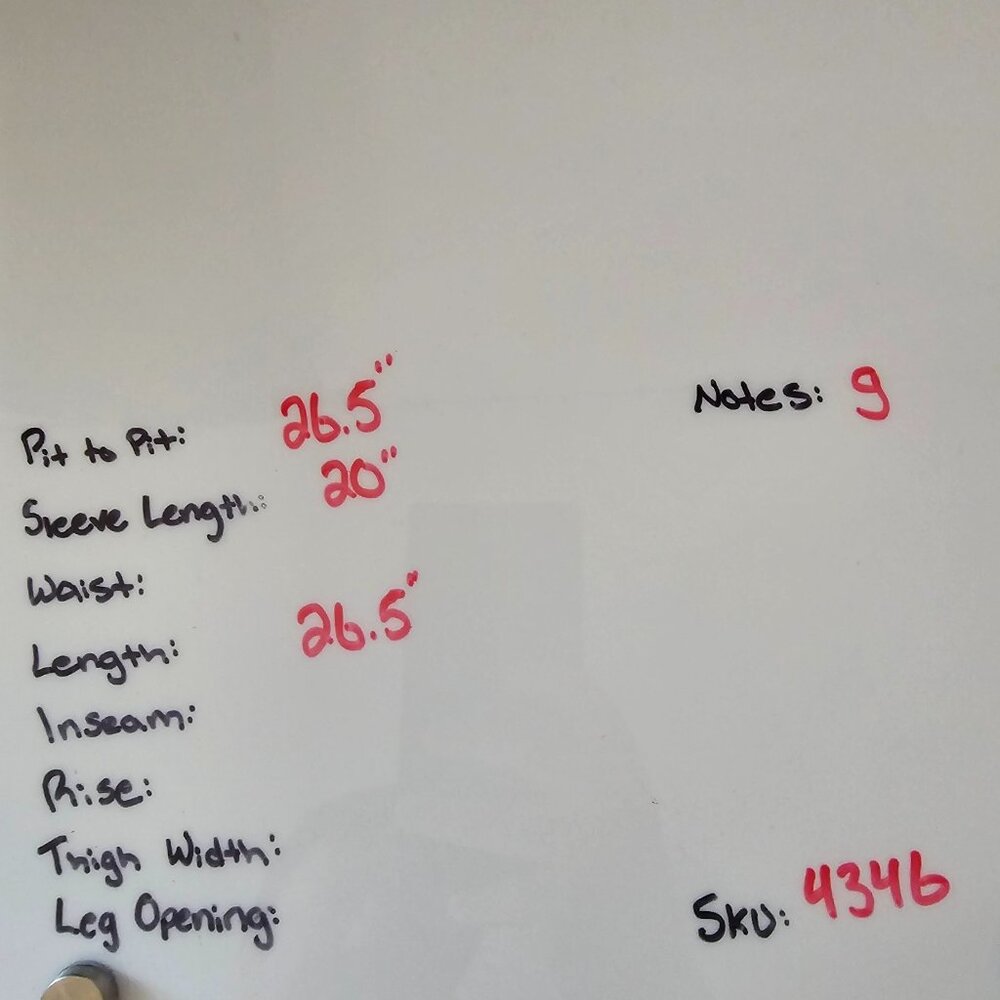 Pit to Pit: 26.5"
Sleeve Length: 20"
Waist:
Length: 26.5"
Inseam:
Rise:
Thigh Width:
Leg Opening:
Notes: 9
SKU: 4346